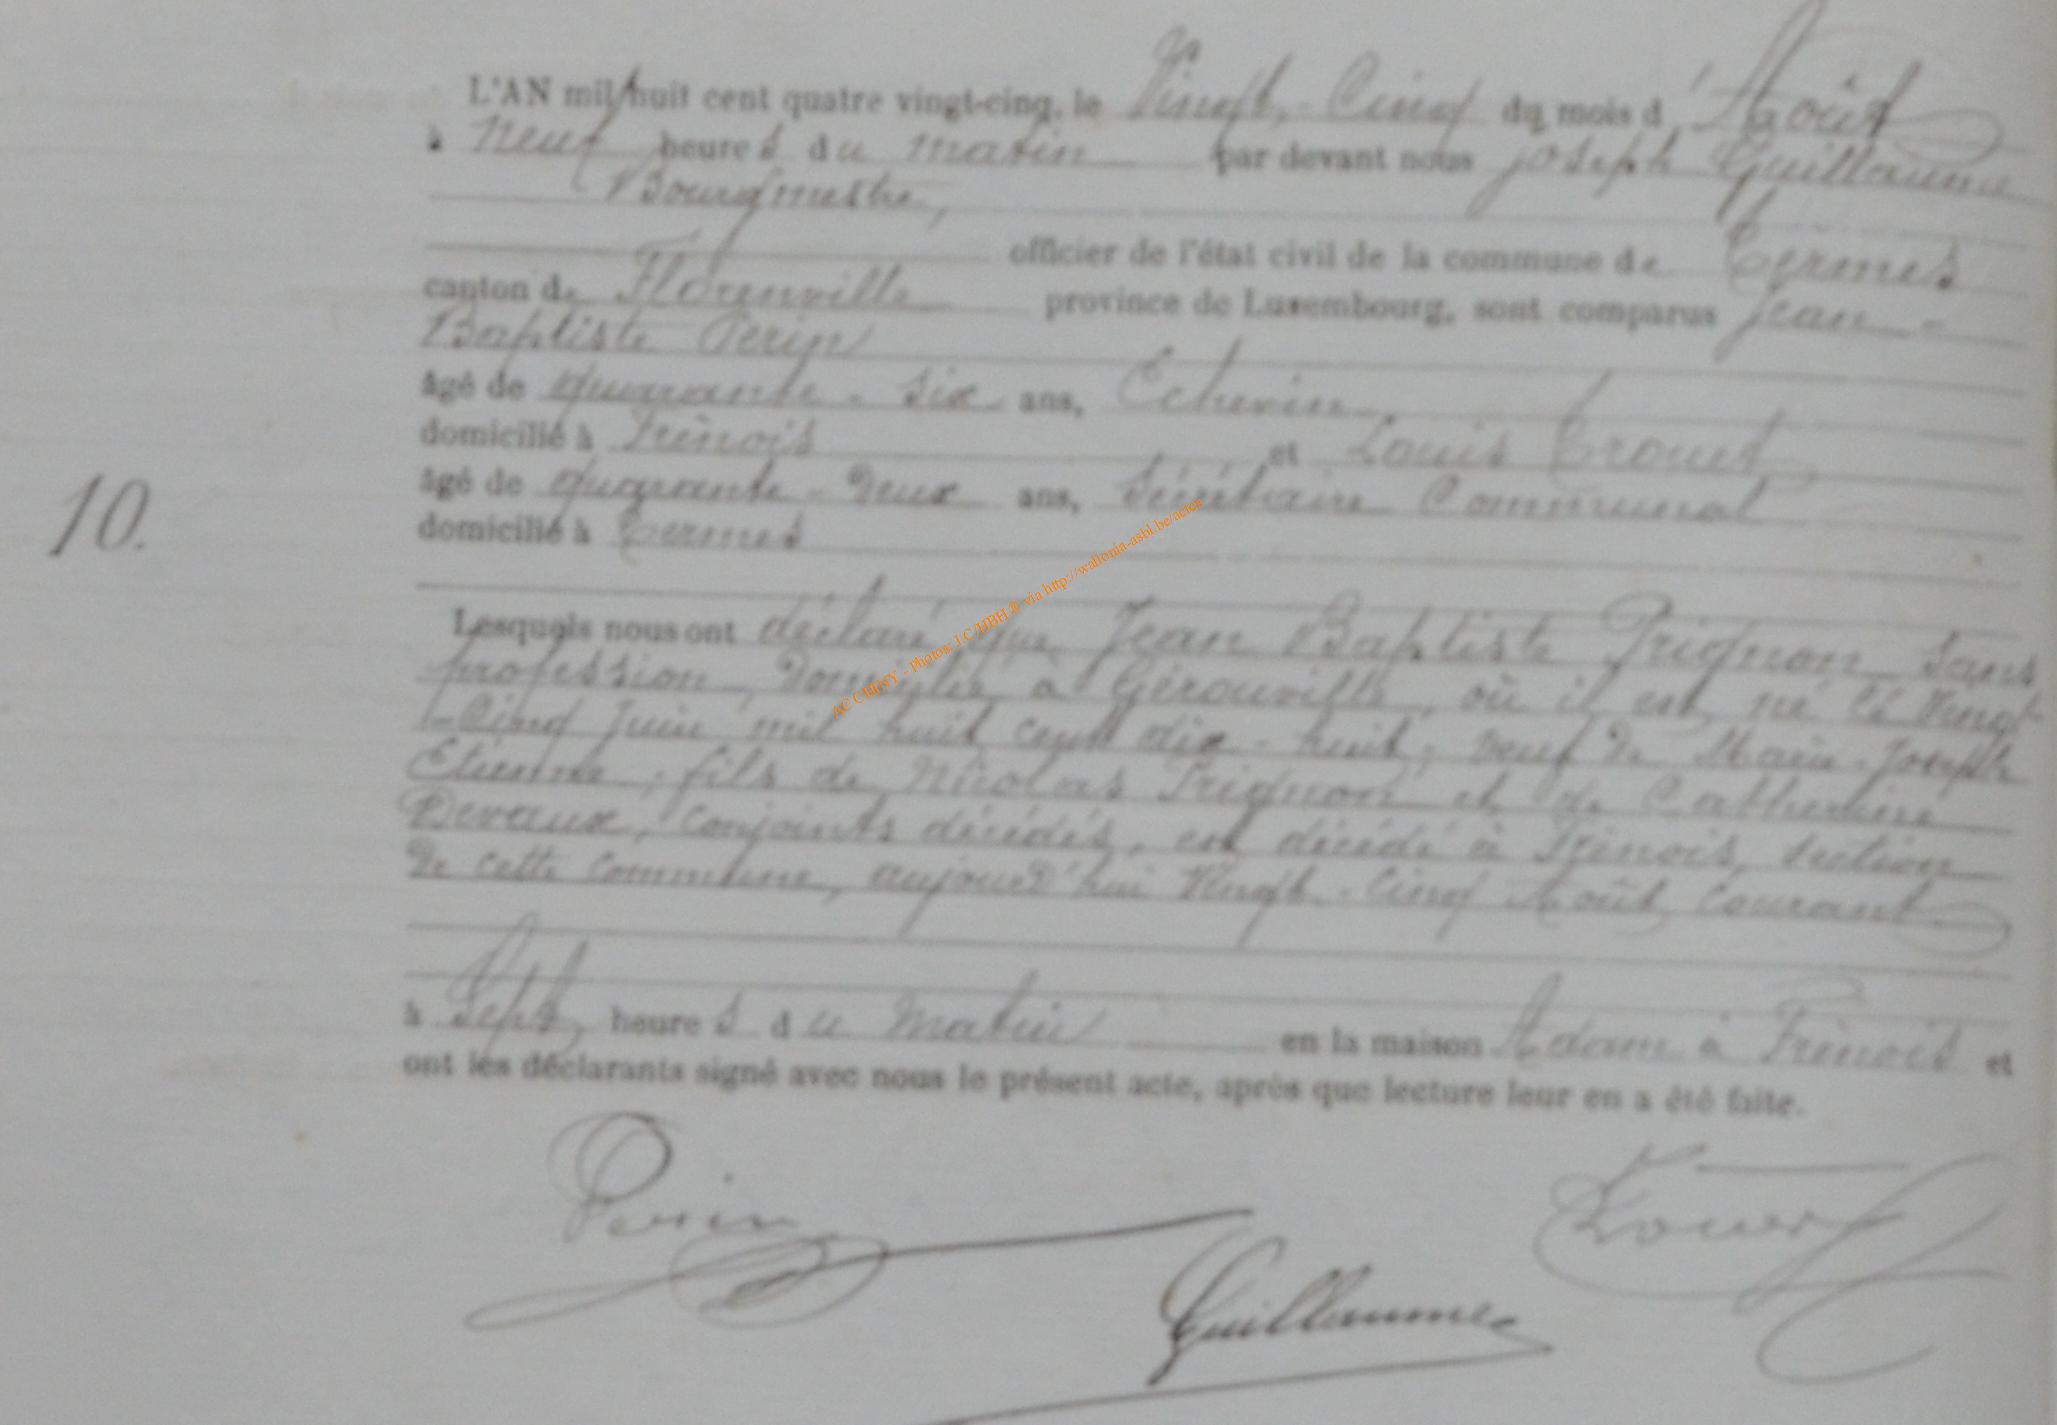 L'AN mil huit cent quatre vingt-cinq, le Vingt-Cinq du mois d'Août
à Neuf heures du matin par devant nous Joseph Guillaume
Bourgmestre,
officier de l'état civil de la commune de Termes
canton de Florenville province de Luxembourg, sont comparus Jean-
Baptiste Perin
âgé de quarante-six ans, Echevin,
domicilié à Frénois et Louis Trouet,
âgé de quarante-deux ans, Sécrétaire Communal
domicilié à Termes
10.
Lesquels nous ont déclaré que Jean Baptiste Prignon sans
profession, domicilié à Gérouville, où il est né le Vingt
-Cinq Juin mil huit cent dix-huit, veuf de Marie-Joseph
Etienne, fils de Nicolas Prignon et de Catherine
Devaux, conjoints décédés, est décédé à Frénois, section
de cette commune, aujourd'hui Vingt-Cinq Août Courant.
à Sept heures du matin en la maison Adam à Frénois et
ont les déclarants signé avec nous le présent acte, après que lecture leur en a été faite.
Perin
Trouet
Guillaume
AC CHINY - Photos: J.C/JJBH.® via http://wallonia-asbl.be/actes